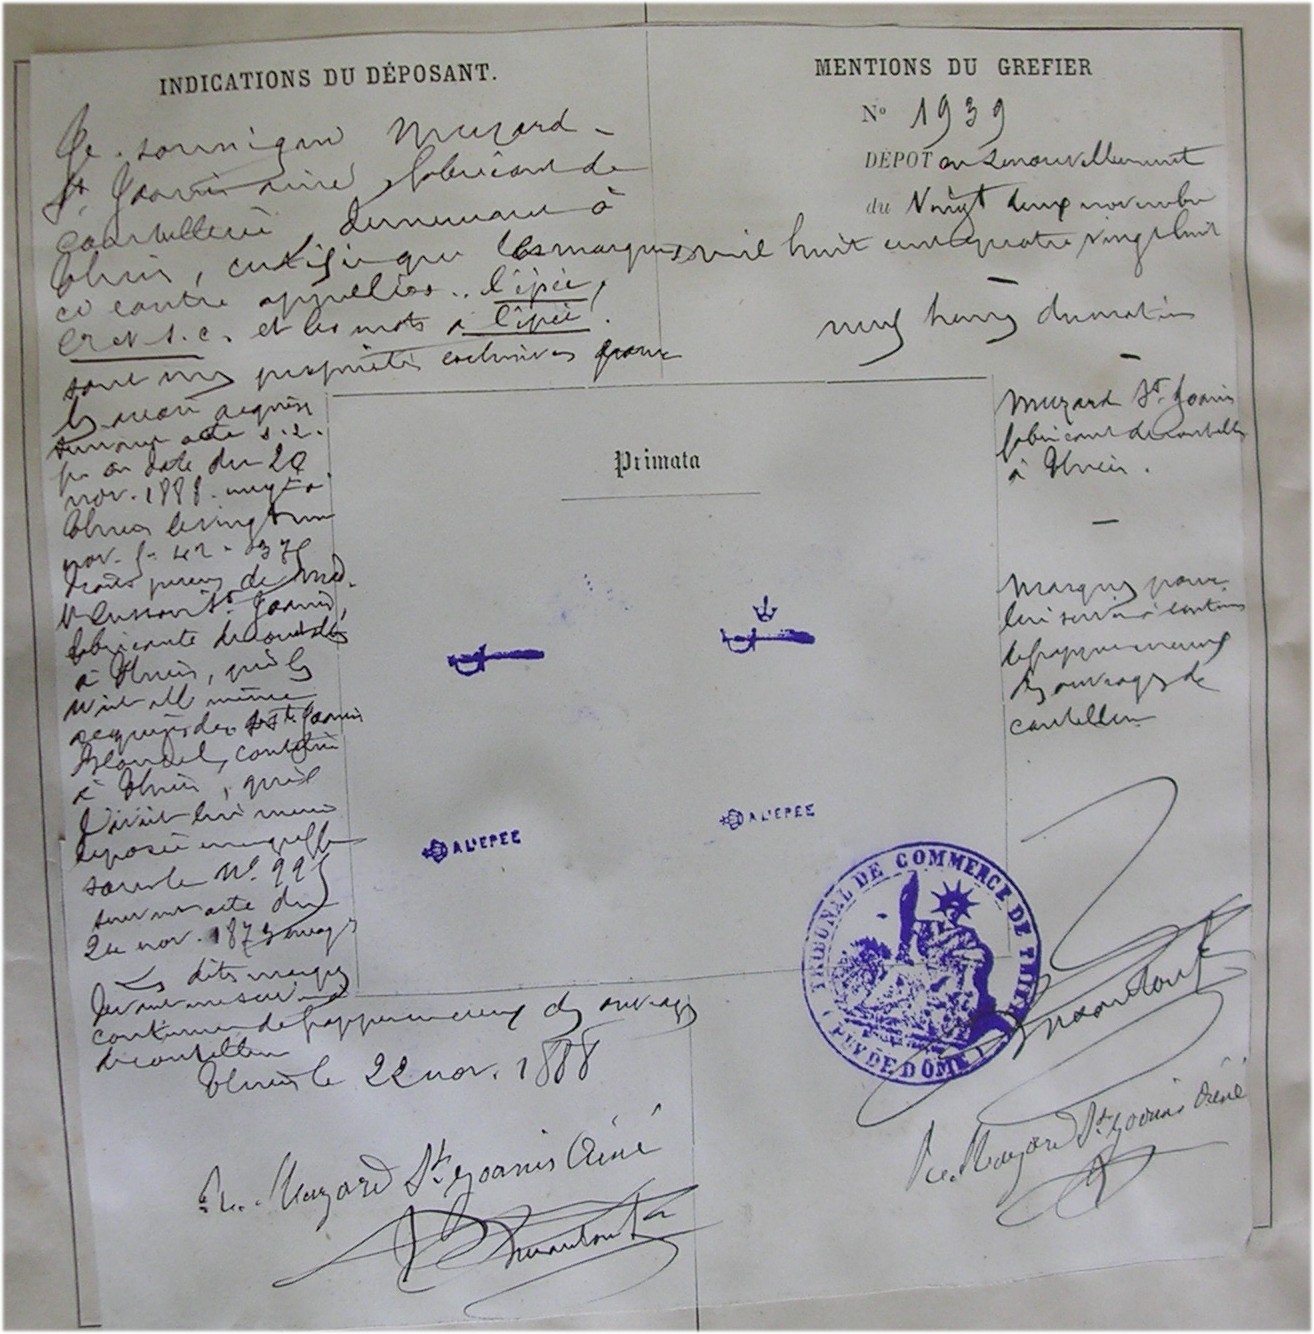 INDICATIONS DU DÉPOSANT.
Je soussigné Muzard
St Joanis ainé, fabricant de
Coutellerie demeurant à
Thiers, certifie que les marques
ci contre appelées l'épée,
et les mots à l'épée.
sont mes propriétés exclusives pour
les avoir acquises
suivant acte s.s.
en date du 20
nov. 1888.
Thiers le vingt un
nov.
de Md.
St Joanis,
fabricante de couteaux
à Thiers, qui les
avait elle même
acquises de St Joanis
Blondel, coutelier
à Thiers, qui
l'avait lui même
déposée au greffe
sous le No. 995
suivant acte du
nov. 1873
Les dites marques
devant me servir à
continuer de frapper mes ouvrages
de coutellerie
Thiers le 22 nov. 1888
Muzard St Joanis Ainé
MENTIONS DU GREFIER
No 1939
DÉPOT en renouvellement
du Vingt deux novembre
mil huit cent quatre vingt huit
neuf heures du matin
Muzard St Joanis
fabricant de coutellerie
à Thiers.
Marques pour
lui servir à continuer
de frapper
ouvrages de
coutellerie
Primata
A L'EPEE
A L'EPEE
TRIBUNAL DE COMMERCE DE THIERS
(PUY DE DÔME)
Muzard St Joanis Ainé